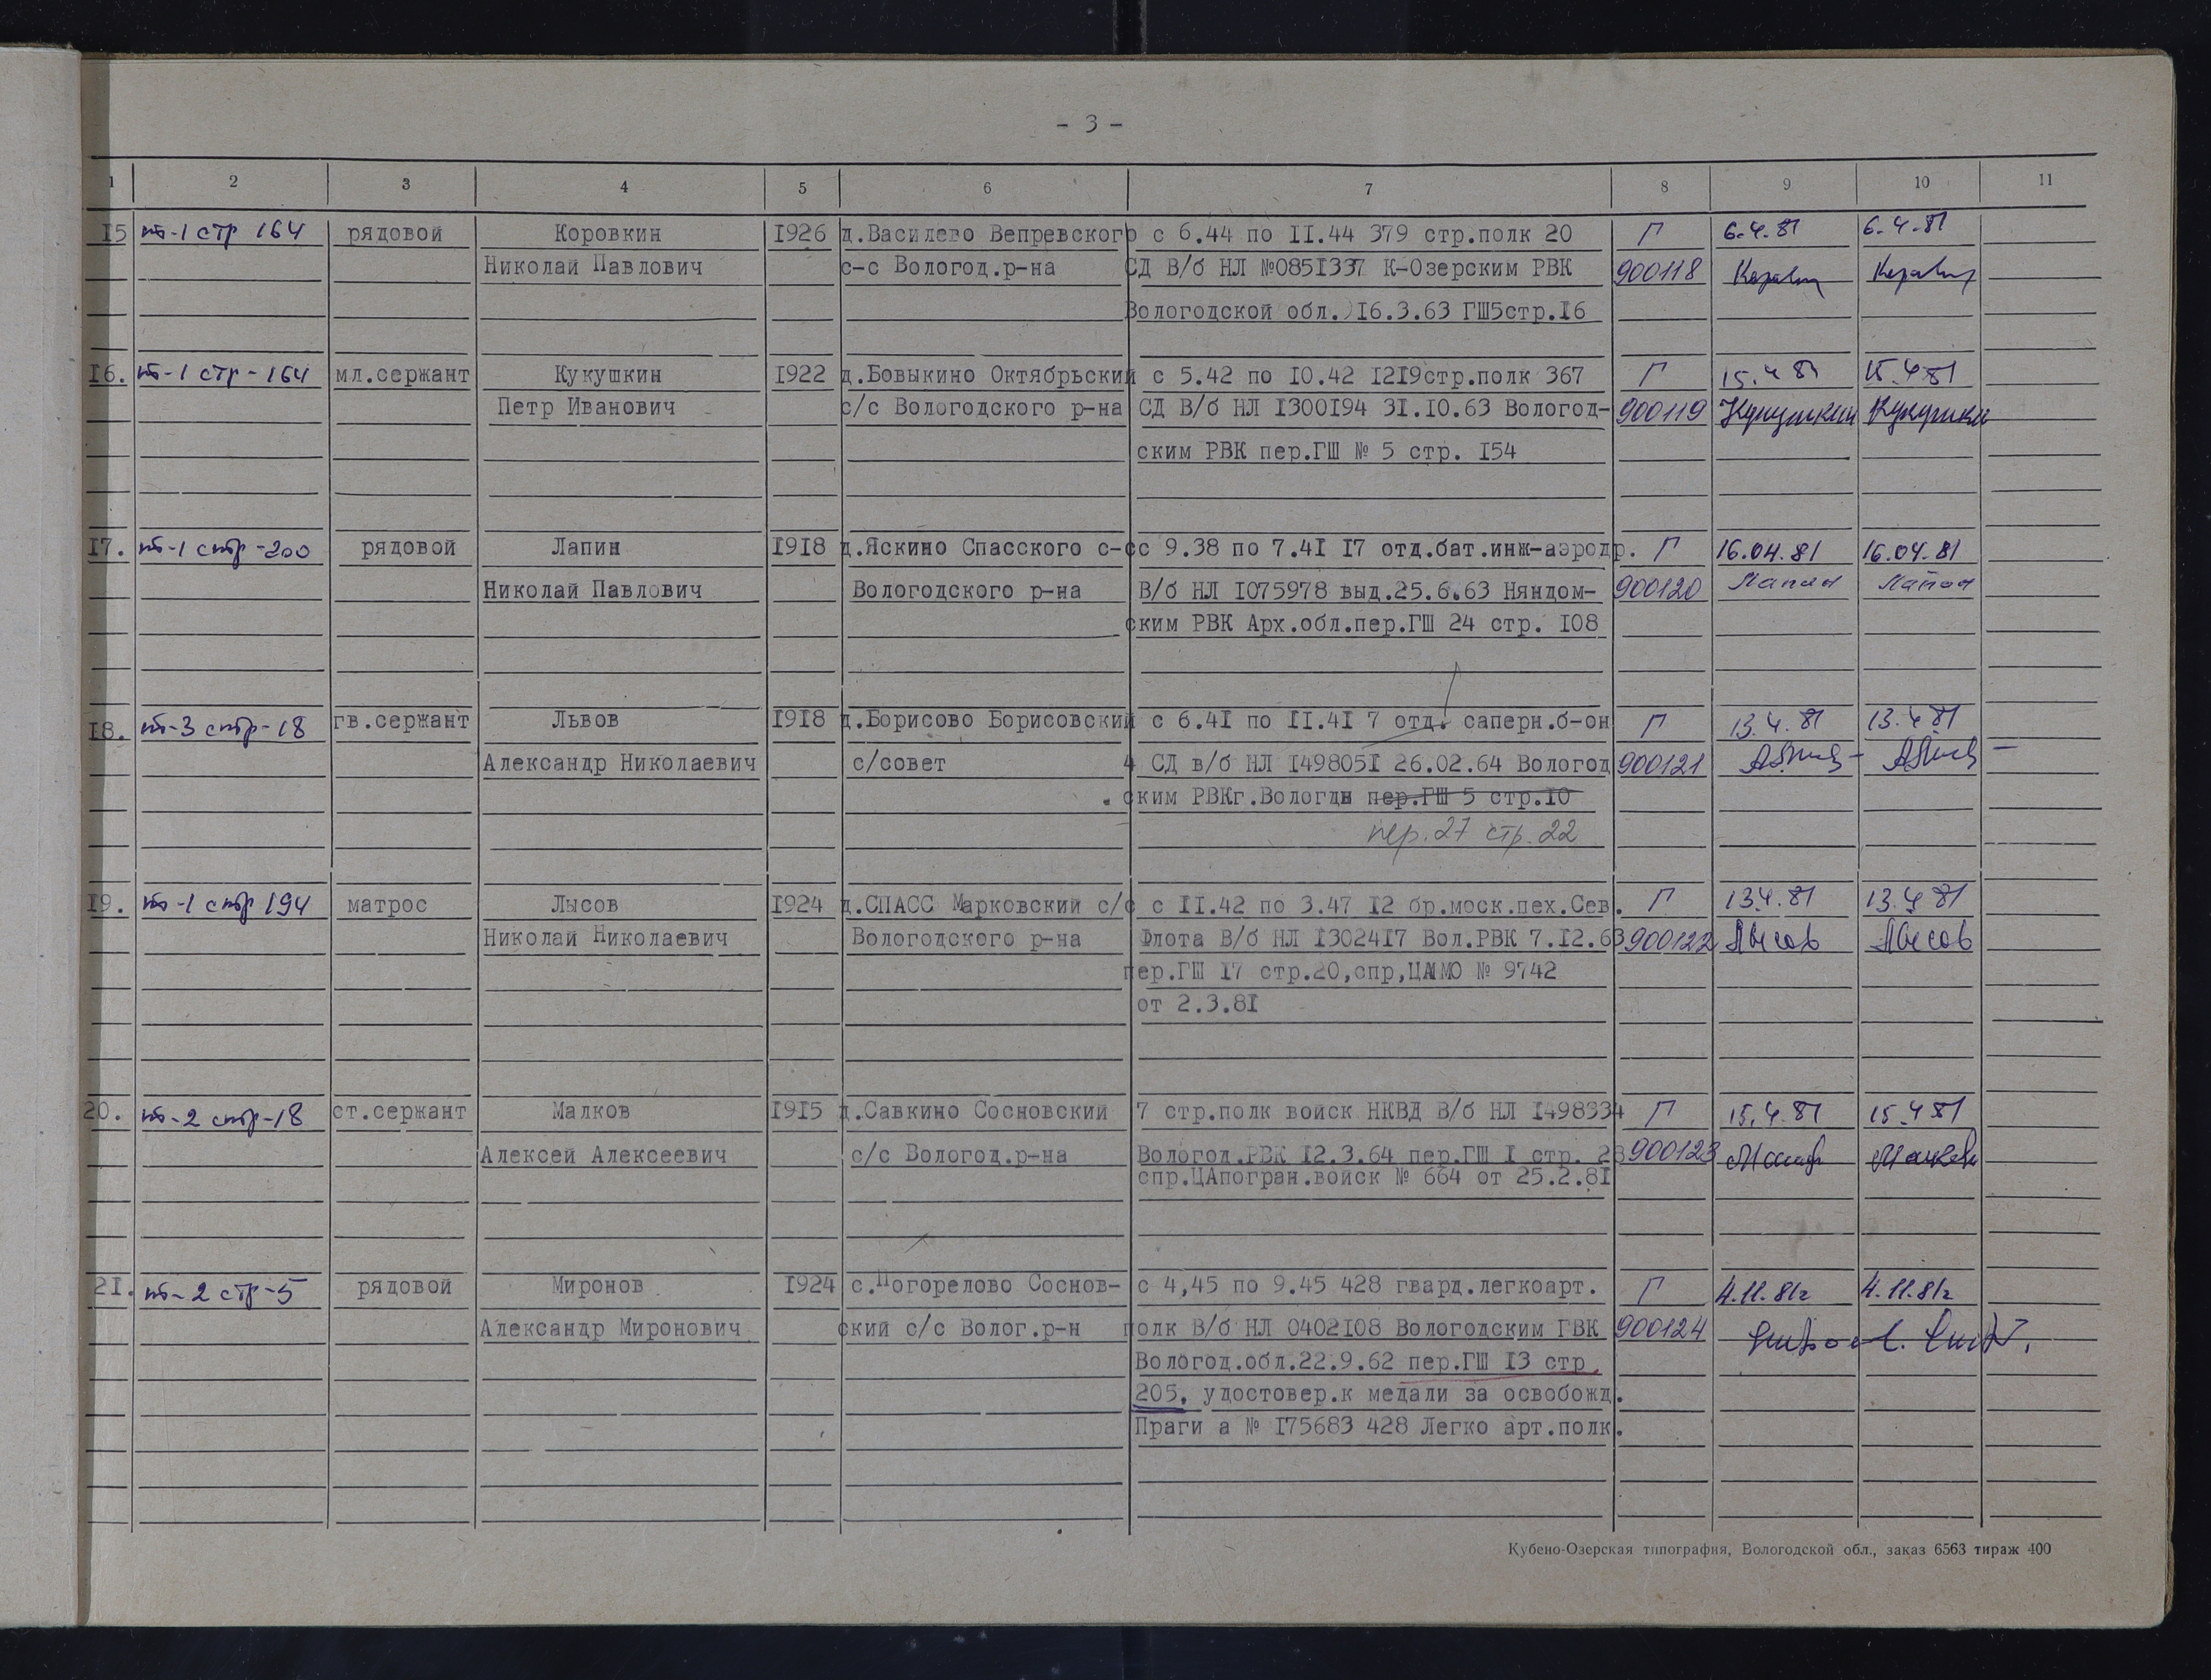 - 3 -
1 2 3 4 5 6 7 8 9 10 11
15 пб-1 стр 164 рядовой Коровкин 1926 д.Василево Вепревского с 6.44 по II.44 379 стр.полк 20 Г 6.4.81 6.4.81
Николай Павлович с-с Вологод.р-на СД В/б НЛ №0851337 К-Озерским РВК 900118
Вологодской обл.)16.3.63 ГШ5стр.16
16. пб-1 стр-164 мл.сержант Кукушкин 1922 д.Бовыкино Октябрьский с 5.42 по 10.42 1219стр.полк 367 Г 15.4 81 15.4 81
Петр Иванович с/с Вологодского р-на СД В/б НЛ 1300194 31.10.63 Вологод- 900119 Кукушкин Кукушкин
ским РВК пер.ГШ № 5 стр. 154
17. пб-1 стр-200 рядовой Лапин 1918 д.Яскино Спасского с-с с 9.38 по 7.41 17 отд.бат.инж-аэродр. Г 16.04.81 16.04.81
Николай Павлович Вологодского р-на В/б НЛ 1075978 выд.25.6.63 Няндом- 900120 Лапин Лапин
ским РВК Арх.обл.пер.ГШ 24 стр. 108
18. пб-3 стр-18 гв.сержант Львов 1918 д.Борисово Борисовский с 6.41 по II.41 7 отд. саперн.б-он Г 13.4.81 13.4.81
Александр Николаевич с/совет 4 СД в/б НЛ 1498051 26.02.64 Вологод 900121
ским РВКг.Вологды пер.ГШ 5 стр.10
пер.27 стр.22
19. пб-1 стр 194 матрос Лысов 1924 д.СПАСС Марковский с/с с II.42 по 3.47 12 бр.моск.пех.Сев. Г 13.4.81 13.4.81
Николай Николаевич Вологодского р-на Флота В/б НЛ 1302417 Вол.РВК 7.12.63 900122 Лысов Лысов
пер.ГШ 17 стр.20,спр,ЦАМО № 9742
от 2.3.81
20. пб-2 стр-18 ст.сержант Малков 1915 д.Савкино Сосновский 7 стр.полк войск НКВД В/б НЛ 1498334 Г 15.4.81 15.4 81
Алексей Алексеевич с/с Вологод.р-на Вологод.РВК 12.3.64 пер.ГШ I стр. 28 900123
спр.ЦАпогран.войск № 664 от 25.2.81
21. пб-2 стр-5 рядовой Миронов 1924 с.Погорелово Соснов- с 4,45 по 9.45 428 гвард.легкоарт. Г 4.11.81г 4.11.81г
Александр Миронович ский с/с Волог.р-н полк В/б НЛ 0402108 Вологодским ГВК 900124
Вологод.обл.22.9.62 пер.ГШ 13 стр.
205, удостовер.к медали за освобожд.
Праги а № 175683 428 Легко арт.полк.
Кубено-Озерская типография, Вологодской обл., заказ 6563 тираж 400